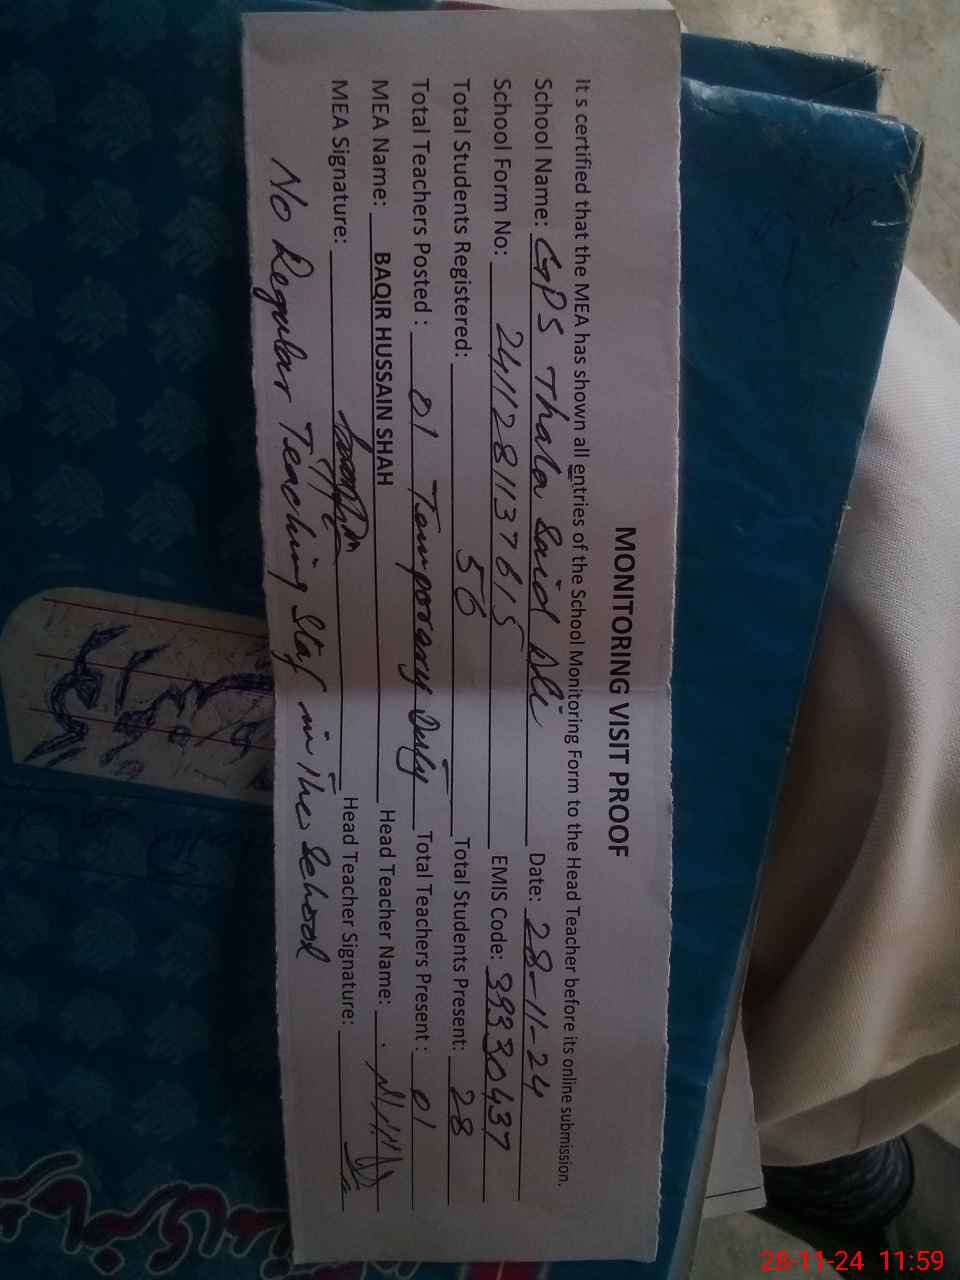 MONITORING VISIT PROOF
It s certified that the MEA has shown all entries of the School Monitoring Form to the Head Teacher before its online submission.
School Name: GPS Thala Said Ali Date: 28-11-24
School Form No: 2411281137615 EMIS Code: 39330437
Total Students Registered: 56 Total Students Present: 28
Total Teachers Posted : 01 Temporary Duty Total Teachers Present : 01
MEA Name: BAQIR HUSSAIN SHAH Head Teacher Name:
MEA Signature: Head Teacher Signature:
No Regular Teaching Staf in the School
28-11-24 11:59